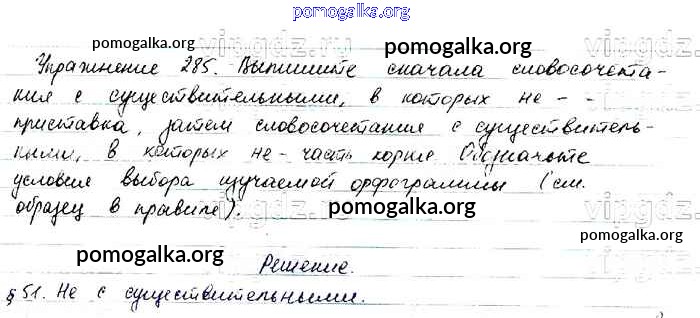 pomogalka.org
pomogalka.org
Упражнение 285. Выпишите сначала словосочета-
pomogalka.org
ния с существительными, в которых не - -
приставка, затем словосочетания с существитель-
ными, в которых не - часть корня. Обозначьте
условия выбора изучаемой орфограммы (см.
образец в правиле).
pomogalka.org
vipgdz.ru
pomogalka.org
Решение.
§ 51. Не с существительными.